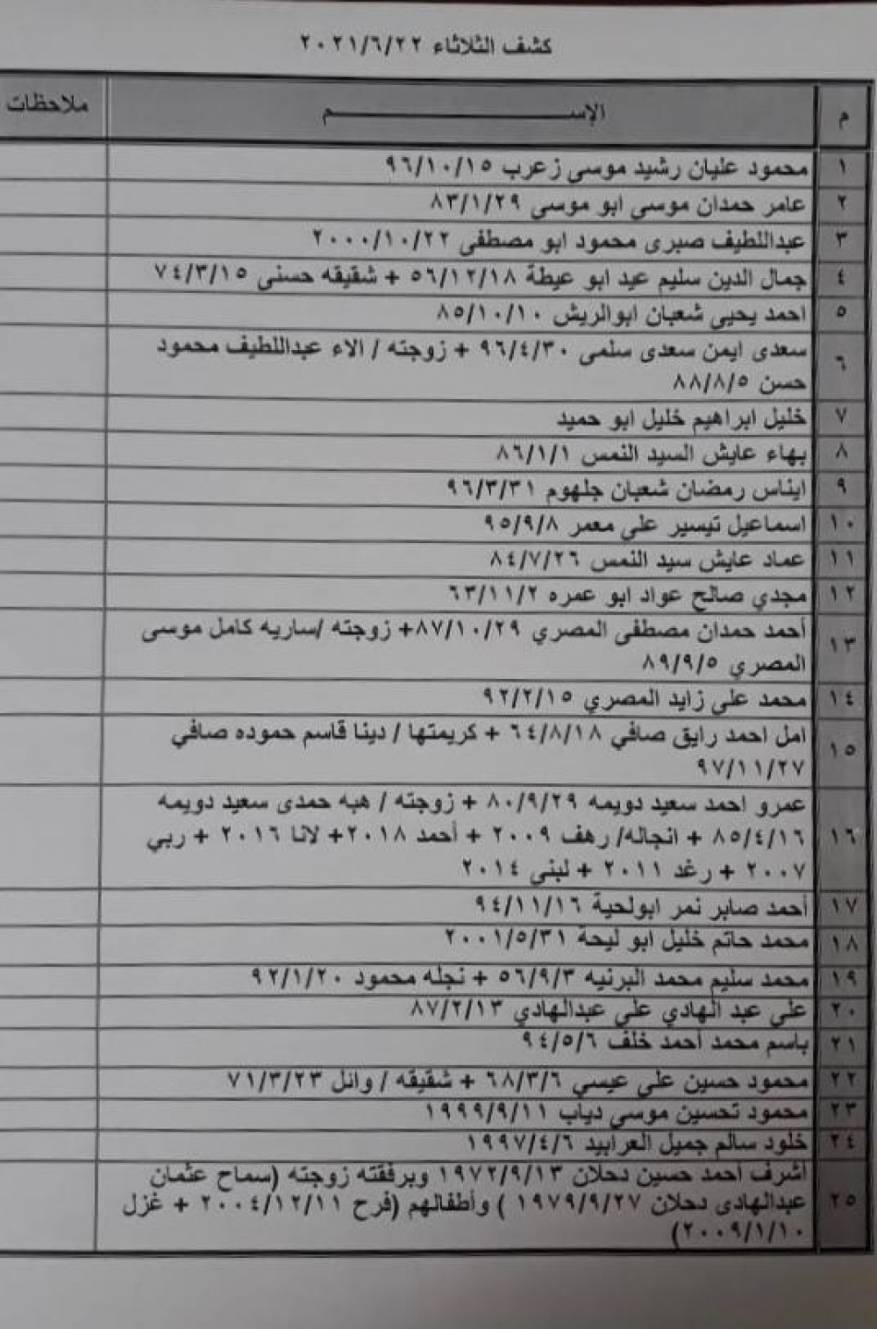 كشف الثلاثاء ٢٠٢١/٦/٢٢
م الإســـــــم ملاحظات
١ محمود عليان رشيد موسى زعرب ٩٦/١٠/١٥
٢ عامر حمدان موسى ابو موسى ٨٣/١/٢٩
٣ عبداللطيف صبرى محمود ابو مصطفى ٢٠٠٠/١٠/٢٢
٤ جمال الدين سليم عيد ابو عيطة ٥٦/١٢/١٨ + شقيقه حسنى ٧٤/٣/١٥
٥ احمد يحيى شعبان ابوالريش ٨٥/١٠/١٠
٦ سعدى ايمن سعدى سلمى ٩٦/٤/٣٠ + زوجته / الاء عبداللطيف محمود
حسن ٨٨/٨/٥
٧ خليل ابراهيم خليل ابو حميد
٨ بهاء عايش السيد النمس ٨٦/١/١
٩ ايناس رمضان شعبان جلهوم ٩٦/٣/٣١
١٠ اسماعيل تيسير على معمر ٩٥/٩/٨
١١ عماد عايش سيد النمس ٨٤/٧/٢٦
١٢ مجدي صالح عواد ابو عمره ٦٣/١١/٢
١٣ أحمد حمدان مصطفى المصري ٨٧/١٠/٢٩+ زوجته /ساريه كامل موسى
المصري ٨٩/٩/٥
١٤ محمد علي زايد المصري ٩٢/٢/١٥
١٥ امل احمد رايق صافي ٦٤/٨/١٨ + كريمتها / دينا قاسم حموده صافي
٩٧/١١/٢٧
١٦ عمرو احمد سعيد دويمه ٨٠/٩/٢٩ + زوجته / هبه حمدى سعيد دويمه
٨٥/٤/١٦ + انجاله/ رهف ٢٠٠٩ + أحمد ٢٠١٨+ لانا ٢٠١٦ + ربي
٢٠٠٧ + رغد ٢٠١١ + لبنى ٢٠١٤
١٧ أحمد صابر نمر ابولحية ٩٤/١١/١٦
١٨ محمد حاتم خليل ابو ليحة ٢٠٠١/٥/٣١
١٩ محمد سليم محمد البرنيه ٥٦/٩/٣ + نجله محمود ٩٢/١/٢٠
٢٠ على عبد الهادي علي عبدالهادي ٨٧/٢/١٣
٢١ باسم محمد أحمد خلف ٩٤/٥/٦
٢٢ محمود حسين على عيسي ٦٨/٣/٦ + شقيقه / وائل ٧١/٣/٢٣
٢٣ محمود تحسين موسى دياب ١٩٩٩/٩/١١
٢٤ خلود سالم جميل العرابيد ١٩٩٧/٤/٦
٢٥ اشرف احمد حسين دحلان ١٩٧٢/٩/١٣ وبرفقته زوجته (سماح عثمان
عبدالهادى دحلان ١٩٧٩/٩/٢٧ ) وأطفالهم (فرح ٢٠٠٤/١٢/١١ + غزل
٢٠٠٩/١/١٠)